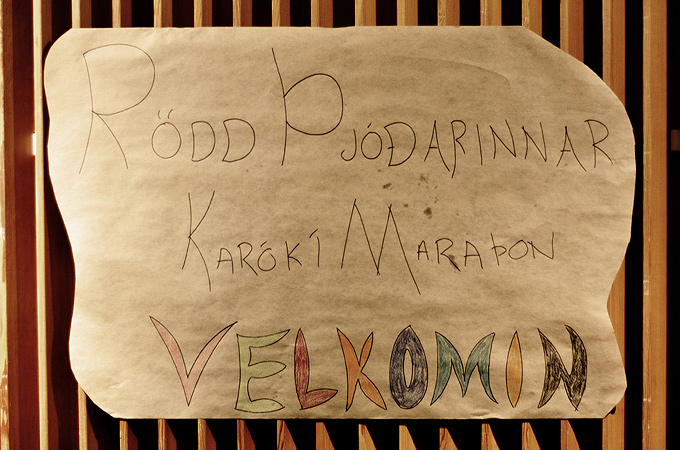 RÖDD ÞJÓÐARINNAR
KARÓKÍ MARAÞON
VELKOMIN